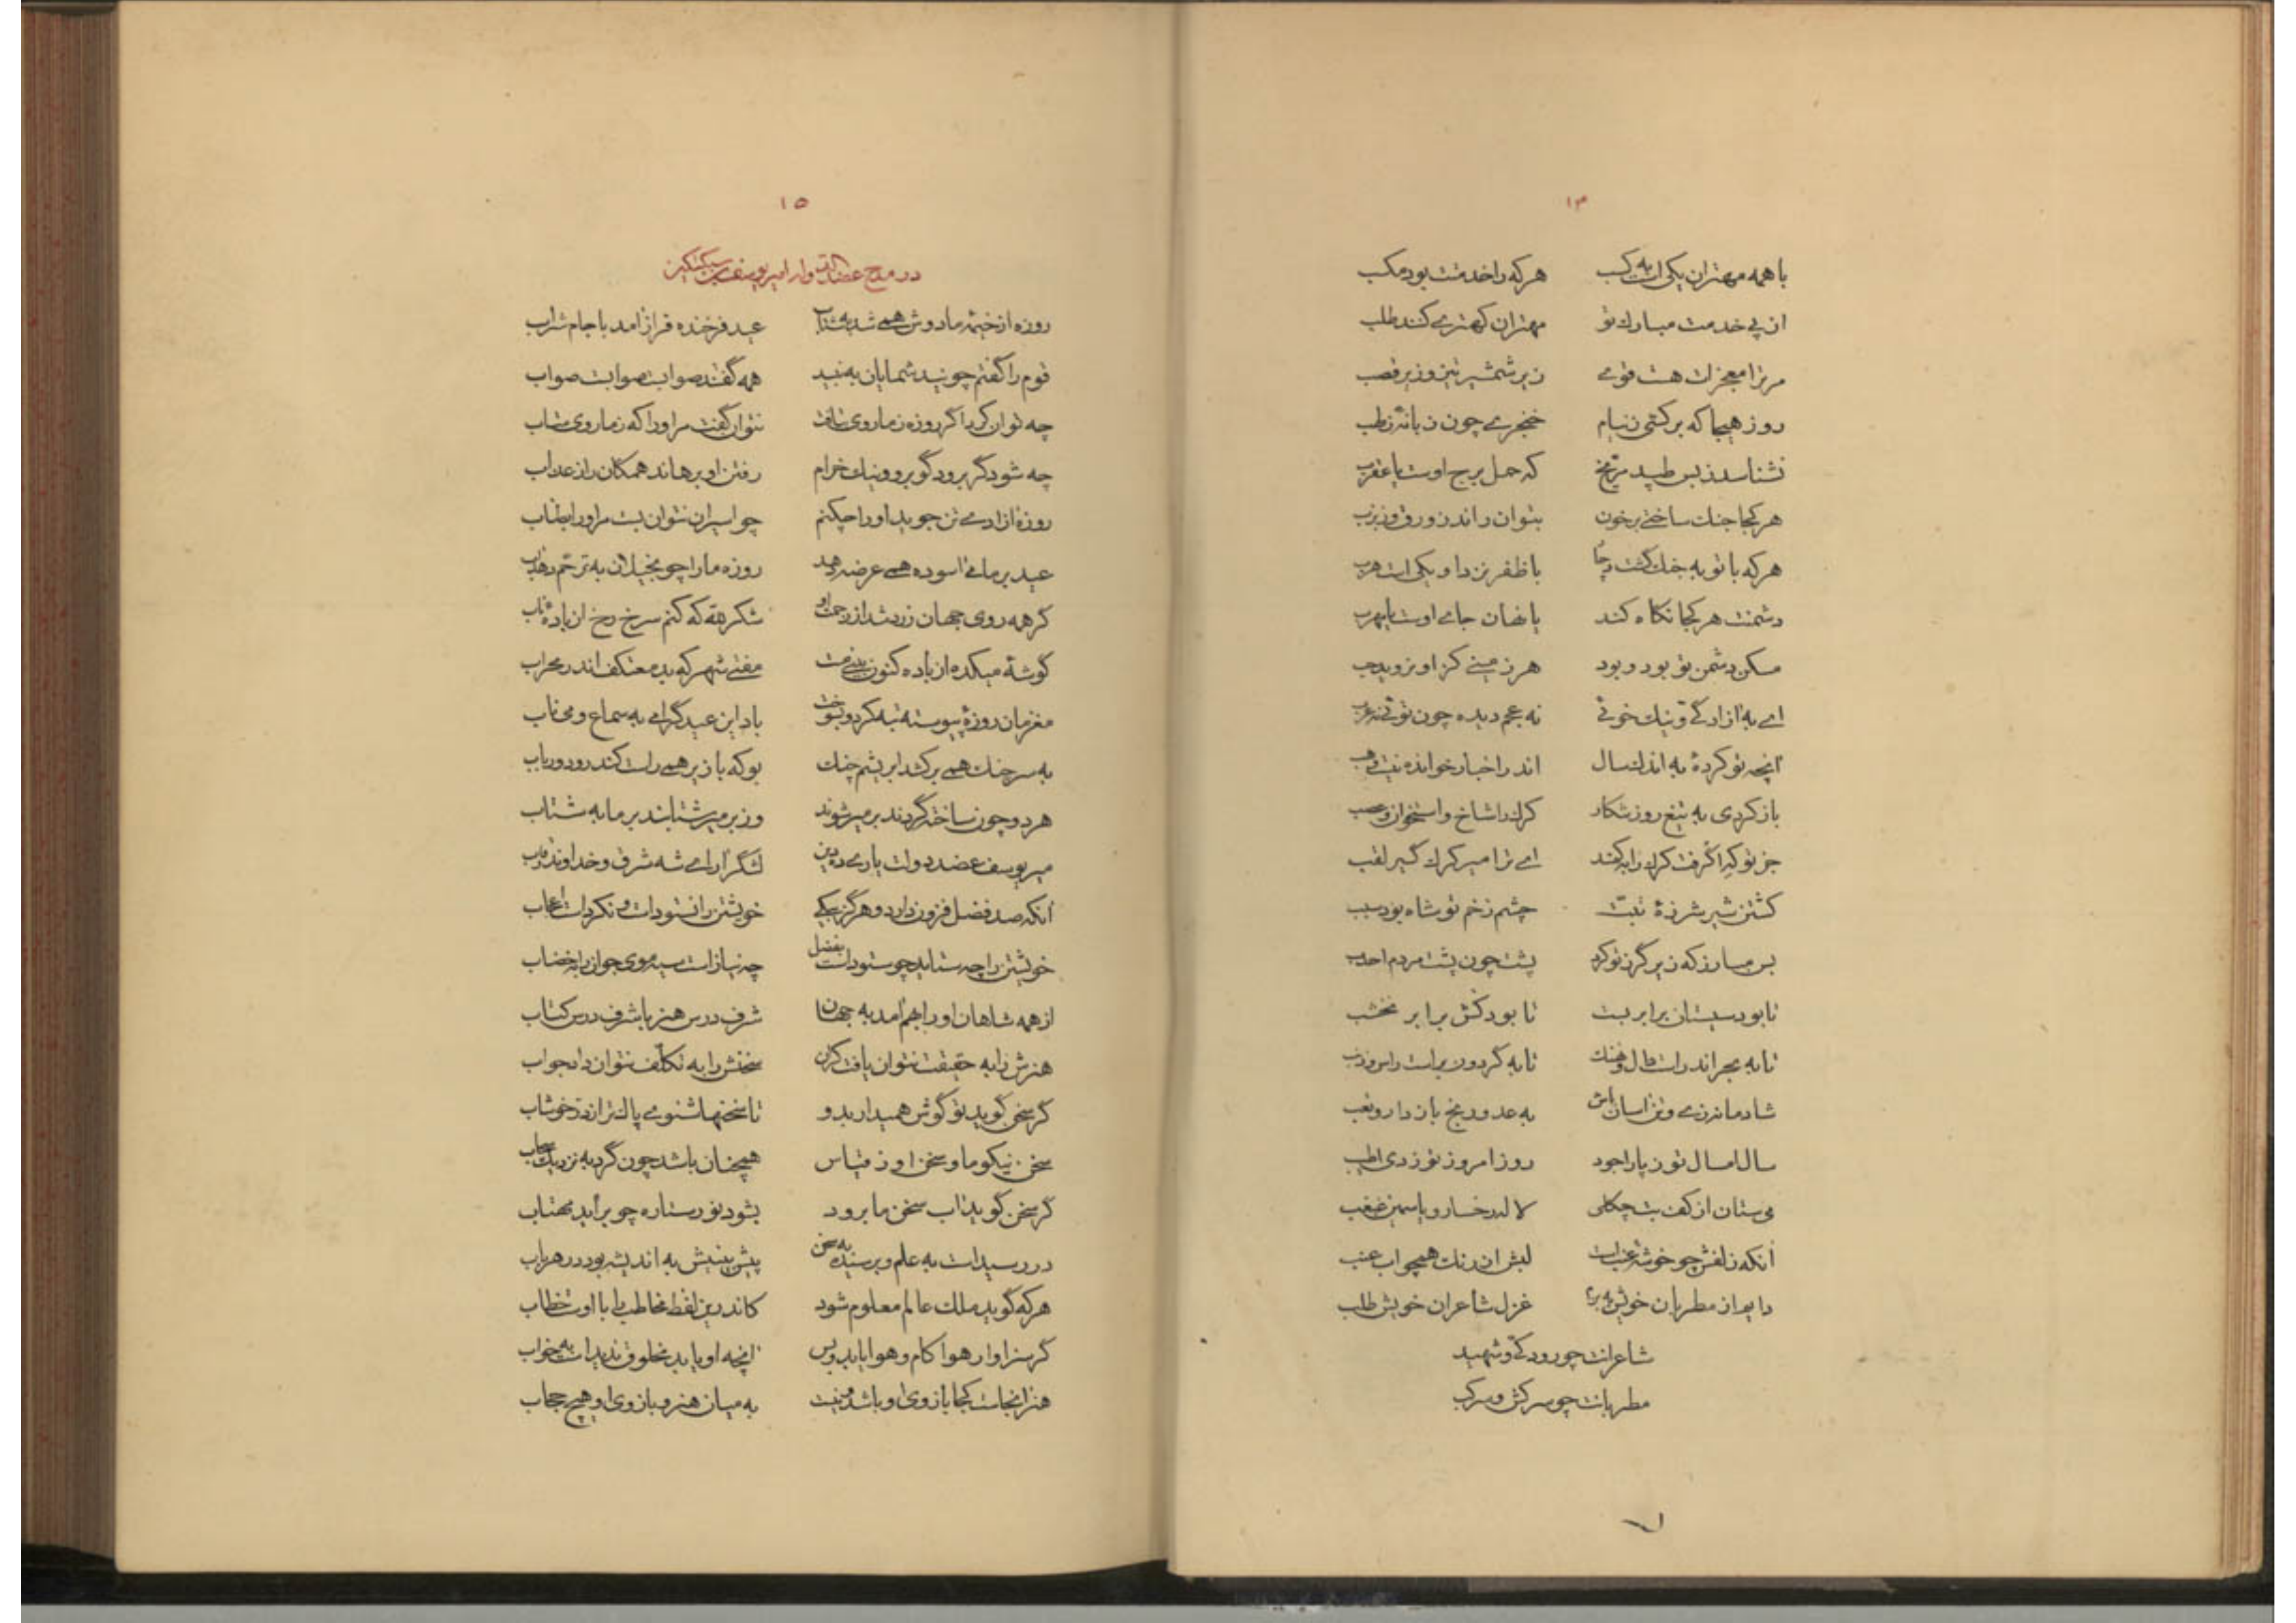 ۱۴
با همه مهتران یکی است به کسب هر که را خدمتت بود مکسب
از پی خدمت مبارک تو مهتران کهتری کنند طلب
مر ترا معجزات هست قوی زیر شمشیر تیز و زیر قصب
روز هیجا که برکشی ز نیام خنجری چون زبانه ز لهب
نشناسد ز بس طپید مریخ که حمل برج اوست یا عقرب
هر کجا جنک ساختی بر خون بتوان راندن زورق و زبزب
هر که با تو به جنک کشت دچار با ظفر نزد او یکی است هرب
دشمنت هر کجا نکاه کند یا نهان جای اوست یا مهرب
مسکن دشمن تو بود و بود هر زمینی کز او نروید حب
ای به آزادکی و نیک خوئی نه عجم دیده چون توئی نه عرب
آنچه تو کردهٔ به اندک سال اندر اخبار خوانده نیست وهب
باز کردی به تیغ روز شکار کرک را شاخ و استخوان و عصب
جز تو که را گرفت کرک را به کمند ای ترا میر کرک گیر لقب
کشتن شیر شرزهٔ تبت چشم زخم تو شاه بود سبب
بس مبارز که زیر گرز تو کرد پشت چون پشت مردم احدب
تا بود سیستان برابر بست تا بود کش برابر نخشب
تا به بحر اندر است وال و نهنک تا به گردون بر است راس و ذنب
شادمانه زی و تن آسان باش به عدو رنج بازدار و تعب
سال امسال تو ز پار اجود روز امروز تو ز دی اطیب
می ستان از کف بت چگلی لاله رخسار و یاسمین غبغب
آنکه زلفش چو خوشه عنب است لبش از رنک همچو آب عنب
دایم از مطربان خویش به بزم غزل شاعران خویش طلب
شاعرانت چو رودکی و شهید
مطربانت چو سرکش و سرکب
۱۵
در مدح عضدالدوله امیر یوسف بن سبکتکین
روزه از خیمهٔ ما دوش همی شد به شتاب عید فرخنده فراز آمد با جام شراب
قوم را گفتم چونید شمایان به نبید همه گفتند صوابست صوابست صواب
چه توان کرد اگر روزه ز ما روی بتافت نتوان گفت مر او را که ز ما روی متاب
چه شود گر برود گو برو و نیک خرام رفتن او برهاند همکان را ز عذاب
روزه آزادی تن جوید او را چکنم چو اسیران نتوان بست مر او را بطناب
عید بر ما می آسوده همی عرضه دهد روزه ما را چو بخیلان به ترحم دهد آب
گر همه روی جهان زرد شد از زحمت او شکر لله که کنم سرخ رخ از باده ناب
گوشهٔ میکده از باده کنون بینی مست مفتی شهر که بد معتکف اندر محراب
مغز ما روزهٔ پیوسته تبه کرد و بسوخت باد این عید گرامی به سماع و می ناب
به سر چنک همی برکشد ابریشم چنک بو که با زیر همی راست کند رود رباب
هر دو چون ساخته گردند بر میر شوند وز بر میر شتابند بر ما به شتاب
میر یوسف عضد دولت یاری ده دین لشگر آرای شه شرق و خداوند رقاب
آنکه صد فضل فزون دارد و هرگز به یکی خویشتن را نستودست و نکردست اعجاب
خویشتن را چه ستاید چو ستودست بفضل چه نیاز است سیه موی جوان را به خضاب
از همه شاهان او را بهم آمد به جهان شرف درس هنر با شرف درس کتاب
هنرش را به حقیقت نتوان یافت کران سخنش را به تکلف نتوان داد جواب
گر سخن گوید تو گوش همیدار بدو تا سخنها شنوی پاک تر از در خوشاب
سخن نیکو ما و سخن او ز قیاس همچنان باشد چون گرد به نزدیک سحاب
گر سخن گوید آب سخن ما برود بشود نور ستاره چو برآید مهتاب
در رسیداست به علم و برسیده به سخن پیش بینیش به اندیشه بود در هر باب
هر که گوید ملک عالم معلوم شود کاندرین لفظ مخاطب را با اوست خطاب
گر سزاوار هوا کام و هوا یابد و بس آنچه او یابد مخلوق ندیداست به خواب
هنر آنجاست کجا بازوی او باشد و نیست به میان هنر و بازوی او هیچ حجاب